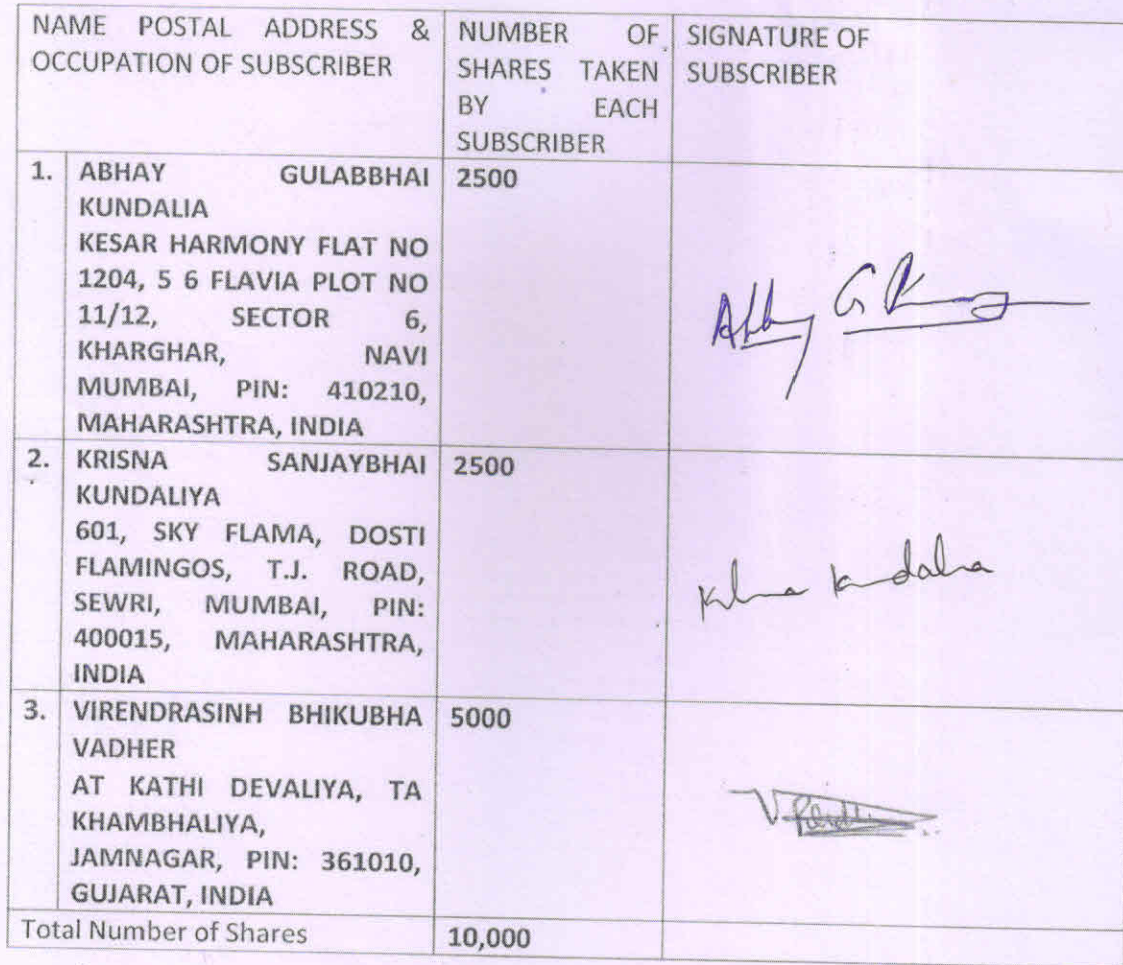 NAME POSTAL ADDRESS &
OCCUPATION OF SUBSCRIBER
NUMBER OF
SHARES TAKEN
BY EACH
SUBSCRIBER
SIGNATURE OF
SUBSCRIBER
1.
ABHAY GULABBHAI
KUNDALIA
KESAR HARMONY FLAT NO
1204, 5 6 FLAVIA PLOT NO
11/12, SECTOR 6,
KHARGHAR, NAVI
MUMBAI, PIN: 410210,
MAHARASHTRA, INDIA
2500
2.
KRISNA SANJAYBHAI
KUNDALIYA
601, SKY FLAMA, DOSTI
FLAMINGOS, T.J. ROAD,
SEWRI, MUMBAI, PIN:
400015, MAHARASHTRA,
INDIA
2500
3.
VIRENDRASINH BHIKUBHA
VADHER
AT KATHI DEVALIYA, TA
KHAMBHALIYA,
JAMNAGAR, PIN: 361010,
GUJARAT, INDIA
5000
Total Number of Shares
10,000